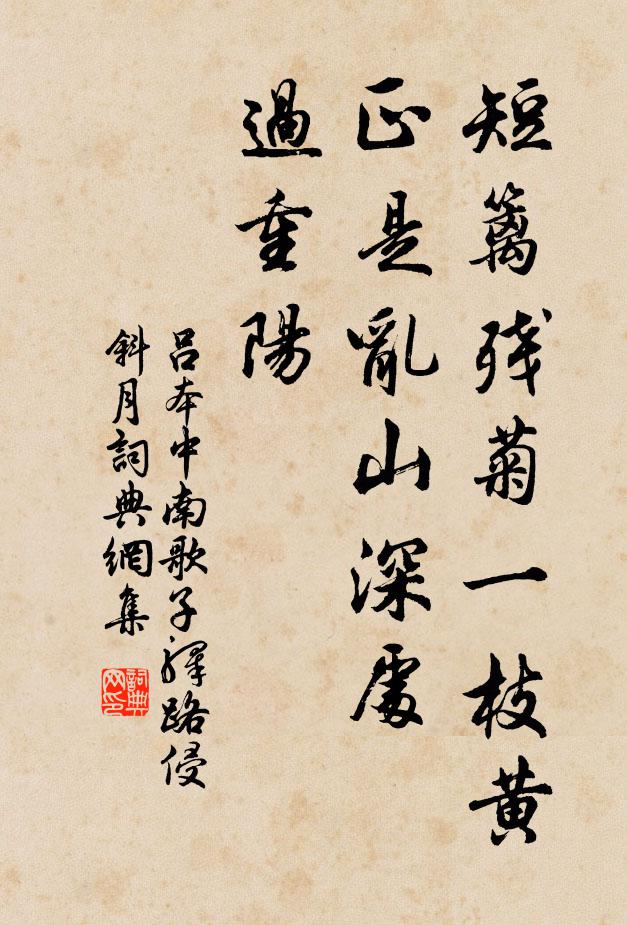 短篱残菊一枝黄
正是亂山深處
過重陽
呂本中南歌子驛路侵
斜月詞典網集
詞典网印